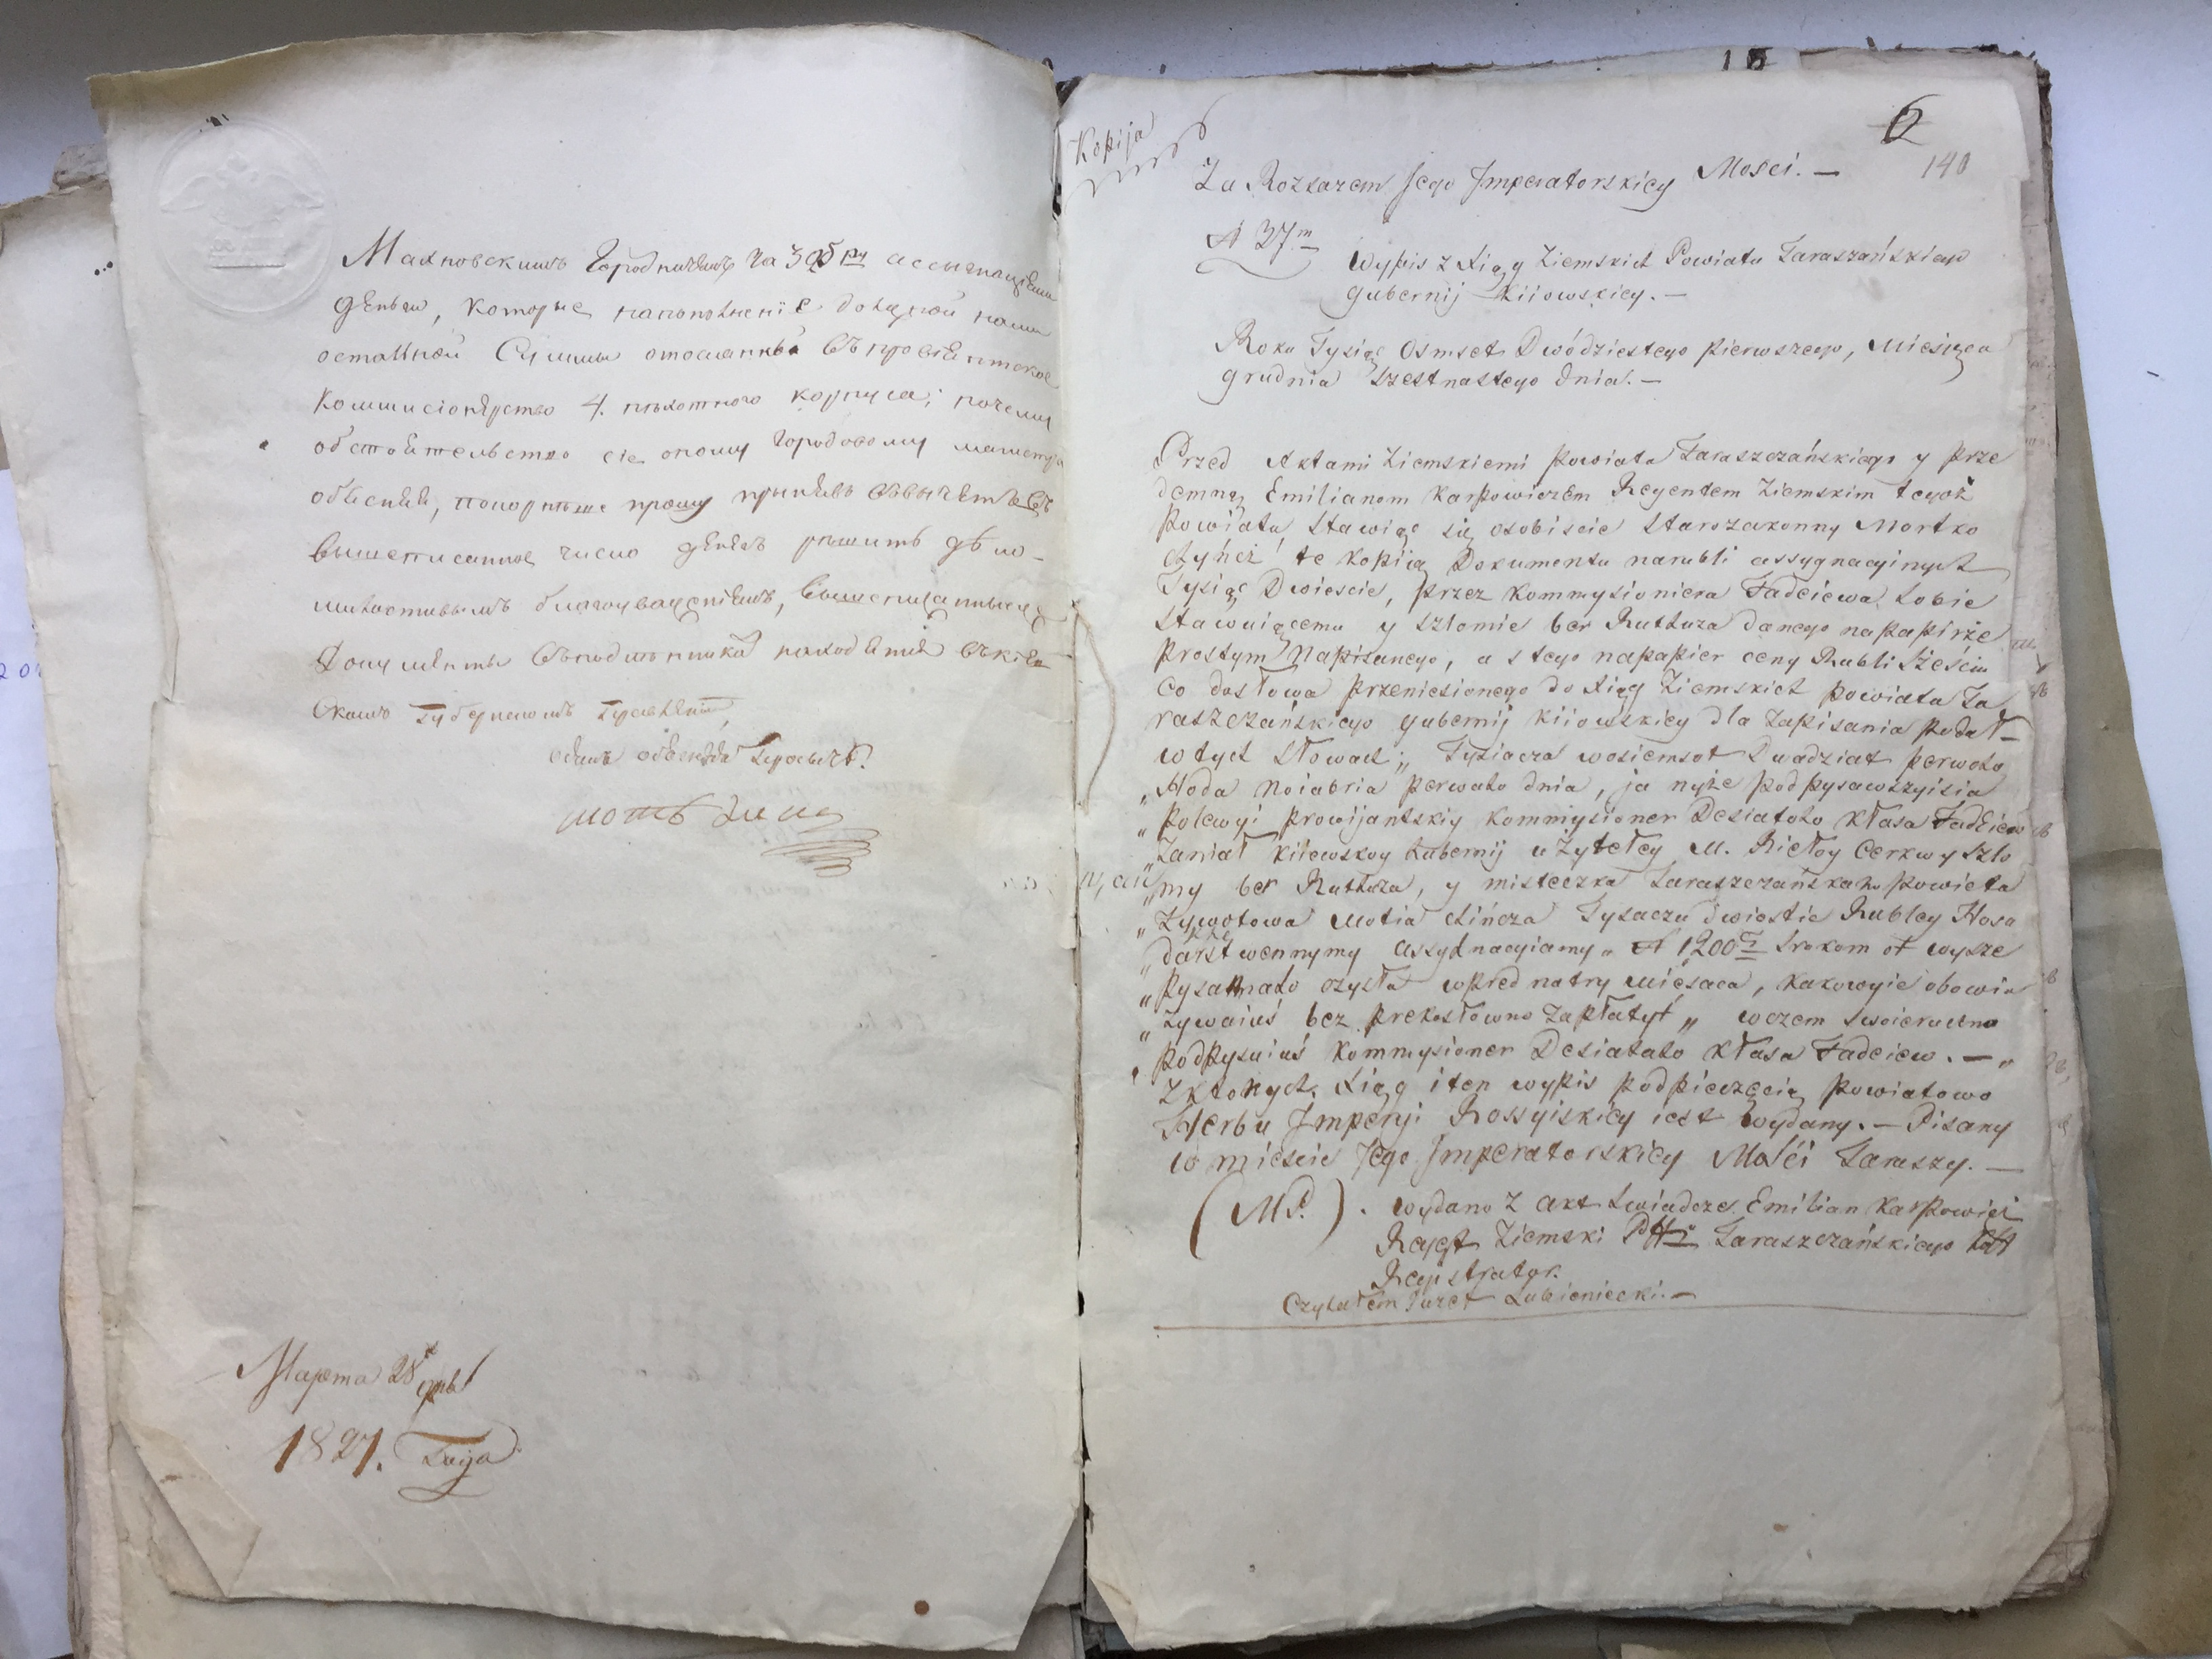 Махновскимъ Городничимъ за 30 ру ассигнацiями
деньги, которые напополненiе должной нами
остальной Суммы отосланны въ провiянтское
Коммисiонерство 4. пехотного корпуса; почему
обстоятельство сiе оному Городовому магистра
обяснивъ, покорнеше прошу принявъ въвычетъ съ
вышеписанное число денегъ решить дело
милостивымъ благоуваженiемъ, вышеписанные
документы въподлиннике находятся въкiев
скомъ губернскомъ Правленiи,
Марта 28 дня
1827. Года
Kopija
6
140
Za Rozkazem Jego Imperatorskiey Mosci. —
N 37m
Wypis z Xiąg Ziemskich Powiatu Taraszańskiego
gubernij Kiiowskiey. —
Roku Tysiąc Osmset Dwódziestego pierwszego, Miesiąca
grudnia szestnastego dnia. —
Przed Aktami Ziemskiemi powiata Taraszczańskiego y prze
demną Emilianem Karpowiczem Regentem Ziemskim tegoż
powiatu, stawiąc się osobiscie starozakonny Mortko
te kopią Dokumentu narubli assygnacyinych
Tysiąc Dwiescie, przez Kommysioniera Fadeiewa sobie
stawaiącemu y Szlomie ber Ruthuza danego napapirże
prostym napisanego, a s tego napapier ceny Rubli sześciu
co dosłowa przeniesionego do Xiąg Ziemskich powiata Ta
raszczańskiego gubernij kiiowskiey dla zapisania podał —
w tych słowach „ Tysiacza wosiemsot Dwadziat perwoho
„ Hoda Noiabria perwaho dnia, ja nyże podpysawszyisia
„ polewyi prowijantskiy Kommysioner Desiatoho kłasa Fadeiew
„ Zaniał kiiewskoy hubernij u żytełey M. Biełoy Cerkwy Szlo
„ my ber Ruthuza, y misteczka Taraszczańskaho powieta
„ Żywotowa Motia Lińcza Tysaczu dwiestie Rubley Hosu
„ darstwennymy assyhnacyiamy „ N 1200 r. srokom ot wysze
„ pysannaho czysła wpred na try miesaca, kakowyie obowia
„ zywaiuś bez prekosłowno zapłatyt „ wczem swoieruczno
„ podpysuiuś Kommysioner Desiataho kłasa Fadeiew. — „
Zktorych Xiąg iten wypis podpieczęcią powiatowo
Herbu Imperyi Rossyiskiey iest wydany. — Pisany
w miescie Jego Imperatorskiey Mości Taraszy. —
(MP.) . wydano z akt swiadcze Emilian Karpowicz
Regent Ziemski Pttu Taraszczańskiego
Registrator.
Czytałem Jozef Lubieniecki. —